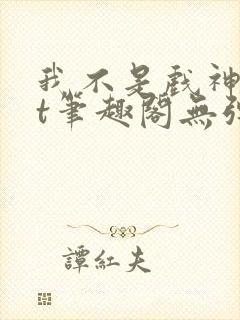 我不是戲神
t筆趣閣無弹
譚紅夫